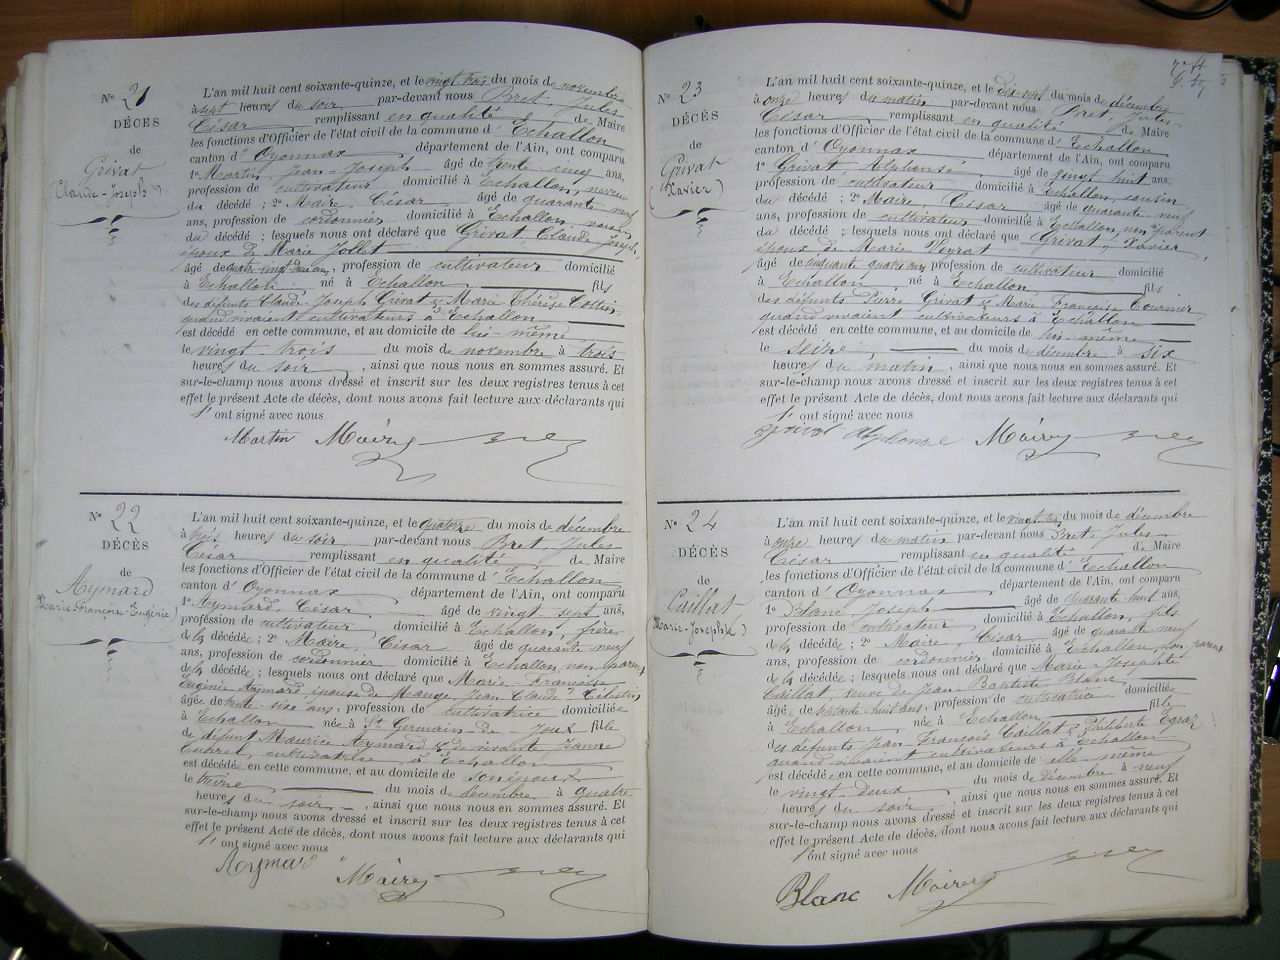 N° 21
DÉCES
de
Grivat
(Claude-Joseph)
L'an mil huit cent soixante-quinze, et le vingt trois du mois de novembre
à sept heures du soir par-devant nous Bret, Jules
César remplissant en qualité de Maire
les fonctions d'Officier de l'état civil de la commune d'Echallon
canton d'Oyonnax département de l'Ain, ont comparu
1° Martin, Jean-Joseph âgé de trente cinq ans,
profession de cultivateur domicilié à Echallon, neveu
du décédé ; 2° Maire César âgé de quarante neuf
ans, profession de cordonnier domicilié à Echallon,
du décédé ; lesquels nous ont déclaré que Grivat, Claude Joseph,
époux de Marie Jollet
âgé de quatre vingt ans, profession de cultivateur domicilié
à Echallon, né à Echallon, fils
des défunts Claude Joseph Grivat & Marie Thérèse Cottin
quand vivaient cultivateurs à Echallon
est décédé en cette commune, et au domicile de lui-même
le vingt-trois du mois de novembre à trois
heures du soir, ainsi que nous nous en sommes assuré. Et
sur-le-champ nous avons dressé et inscrit sur les deux registres tenus à cet
effet le présent Acte de décès, dont nous avons fait lecture aux déclarants qui
l'ont signé avec nous
Martin Maire Bret
N° 22
DÉCÈS
de
Aymard
(Marie Françoise-Eugénie)
L'an mil huit cent soixante-quinze, et le quatorze du mois de décembre
à trois heures du soir par-devant nous Bret, Jules
César remplissant en qualité de Maire
les fonctions d'Officier de l'état civil de la commune d'Echallon
canton d'Oyonnax département de l'Ain, ont comparu
1° Aymard, César âgé de vingt sept ans,
profession de cultivateur domicilié à Echallon, frère
de la décédée ; 2° Maire, César âgé de quarante neuf
ans, profession de cordonnier domicilié à Echallon, non parent
de la décédée ; lesquels nous ont déclaré que Marie Françoise
Eugénie Aymard, épouse de Mange Jean Claude Célestin,
âgée de trente six ans, profession de cultivatrice domiciliée
à Echallon née à St Germain-de-Joux fille
de défunt Maurice Aymard & de vivante Jeanne
cultivatrice à Echallon
est décédée en cette commune, et au domicile de
le treize du mois de décembre à quatre
heures du soir, ainsi que nous nous en sommes assuré. Et
sur-le-champ nous avons dressé et inscrit sur les deux registres tenus à cet
effet le présent Acte de décès, dont nous avons fait lecture aux déclarants qui
l'ont signé avec nous
Aymard Maire Bret
N° 23
DÉCÈS
de
Grivat
(Xavier)
L'an mil huit cent soixante-quinze, et le dix sept du mois de décembre
à onze heures du matin par-devant nous Bret, Jules
César remplissant en qualité de Maire
les fonctions d'Officier de l'état civil de la commune d'Echallon
canton d'Oyonnax département de l'Ain, ont comparu
1° Grivat Alphonse âgé de vingt huit ans,
profession de cultivateur domicilié à Echallon, cousin
du décédé ; 2° Maire, César âgé de quarante neuf
ans, profession de cordonnier domicilié à Echallon, non parent
du décédé ; lesquels nous ont déclaré que Grivat, Xavier,
époux de Marie
âgé de cinquante quatre ans profession de cultivateur domicilié
à Echallon, né à Echallon, fils
des défunts Pierre Grivat & Marie Françoise Tournier
quand vivaient cultivateurs à Echallon
est décédé en cette commune, et au domicile de lui-même
le seize du mois de décembre à six
heures du matin, ainsi que nous nous en sommes assuré. Et
sur-le-champ nous avons dressé et inscrit sur les deux registres tenus à cet
effet le présent Acte de décès, dont nous avons fait lecture aux déclarants qui
l'ont signé avec nous
Grivat Alphonse Maire Bret
N° 24
DÉCÈS
de
Caillat
(Marie-Josephte)
L'an mil huit cent soixante-quinze, et le vingt trois du mois de décembre
à onze heures du matin par-devant nous Bret, Jules
César remplissant en qualité de Maire
les fonctions d'Officier de l'état civil de la commune d'Echallon
canton d'Oyonnax département de l'Ain, ont comparu
1° Blanc Joseph âgé de quarante huit ans,
profession de cultivateur domicilié à Echallon, fils
de la décédée ; 2° Maire, César âgé de quarante neuf
ans, profession de cordonnier domicilié à Echallon, non parent
de la décédée ; lesquels nous ont déclaré que Marie-Josephte
Caillat, veuve de Jean-Baptiste Blanc, domiciliée
âgée de septante huit ans, profession de cultivatrice
à Echallon, née à Echallon fille
des défunts Jean-François Caillat & Philiberte Egraz
quand vivaient cultivateurs à Echallon
est décédée en cette commune, et au domicile de elle-même
le vingt-deux du mois de décembre à neuf
heures du soir, ainsi que nous nous en sommes assuré. Et
sur-le-champ nous avons dressé et inscrit sur les deux registres tenus à cet
effet le présent Acte de décès, dont nous avons fait lecture aux déclarants qui
l'ont signé avec nous
Blanc Maire Bret